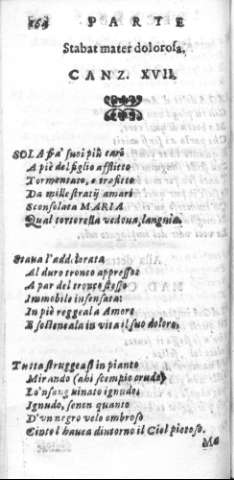 164 PARTE
Stabat mater dolorosa.
CANZ. XVII.
SOLA fra' suoi più cari
A piè del figlio afflitto
Tormentato, e trafitto
Da mille stratij amari
Sconsolata MARIA
Qual tortorella vedoua, languia.
Staua l'addolorata
Al duro tronco appresso:
A par del tronco stesso
Immobile insensata:
In piè reggeal Amore
E sosteneala in vita il suo dolore.
Tutta struggeasi in pianto
Mirando (ahi scempio crudo)
Lo'nsanguinato ignudo;
Ignudo, senon quanto
D'vn negro velo ombroso
Cinto l'hauea diutorno il Ciel pietoso.
Ma